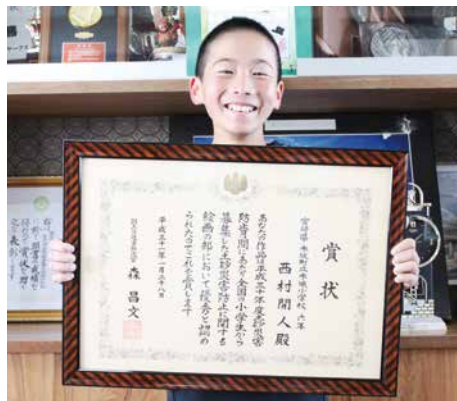 賞状
宮崎県 木城町立木城小学校 六年
西村開人殿
あなたの作品は平成三十年度土砂災害
防止月間にあたり全国の小学生から
募集した土砂災害防止に関する
絵画の部において優秀と認め
られたのでこれを賞します
平成三十一年一月二十八日
国土交通事務次官 森昌文